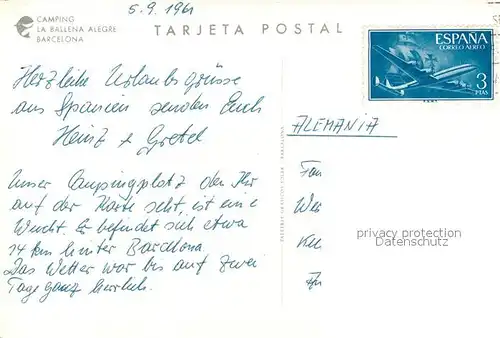 5.9.1961
CAMPING
LA BALLENA ALEGRE
BARCELONA
TARJETA POSTAL
ESPAÑA
CORREO AEREO
3
PTAS
Herzliche Urlaubsgrüsse
aus Spanien senden Euch
Heinz + Gretel
ALEMANIA
Unser Campingplatz den Ihr
auf der Karte seht, ist eine
Wucht. Er befindet sich etwa
14 km hinter Barcelona.
Das Wetter war bis auf zwei
Tage ganz herrlich.
Fam
Wer
privacy protection
Datenschutz